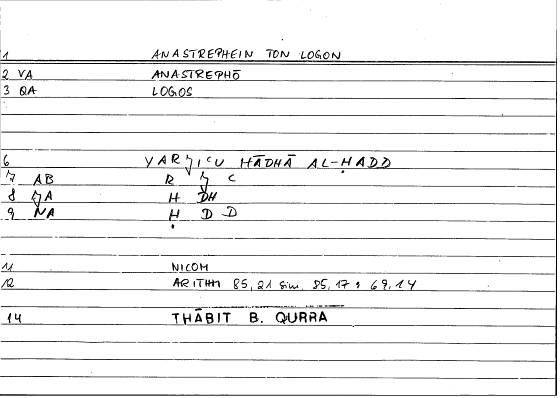 1 ANASTREPHEIN TON LOGON
2 VA ANASTREPHŌ
3 QA LOGOS
6 HĀDHĀ AL-ḤADD
7 AB R C
8 A H DH
9 NA Ḥ D D
11 NICOM
12 ARITHM 85,21 sim. 85,17 69,14
14 THĀBIT B. QURRA